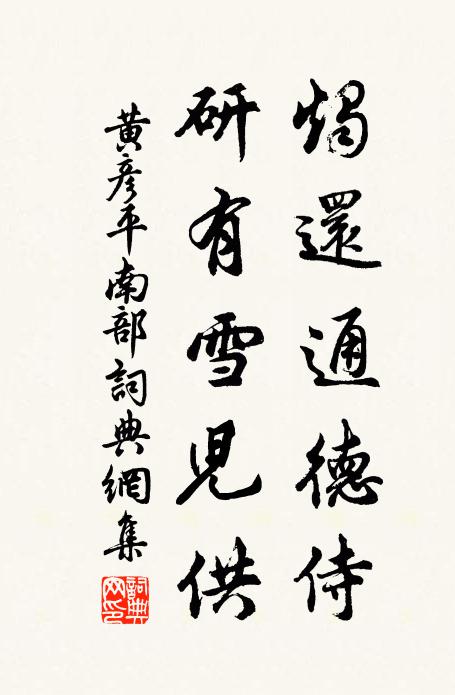 燭還通德侍
研有雪兒供
黃彥平南部詞典網集
詞典網印